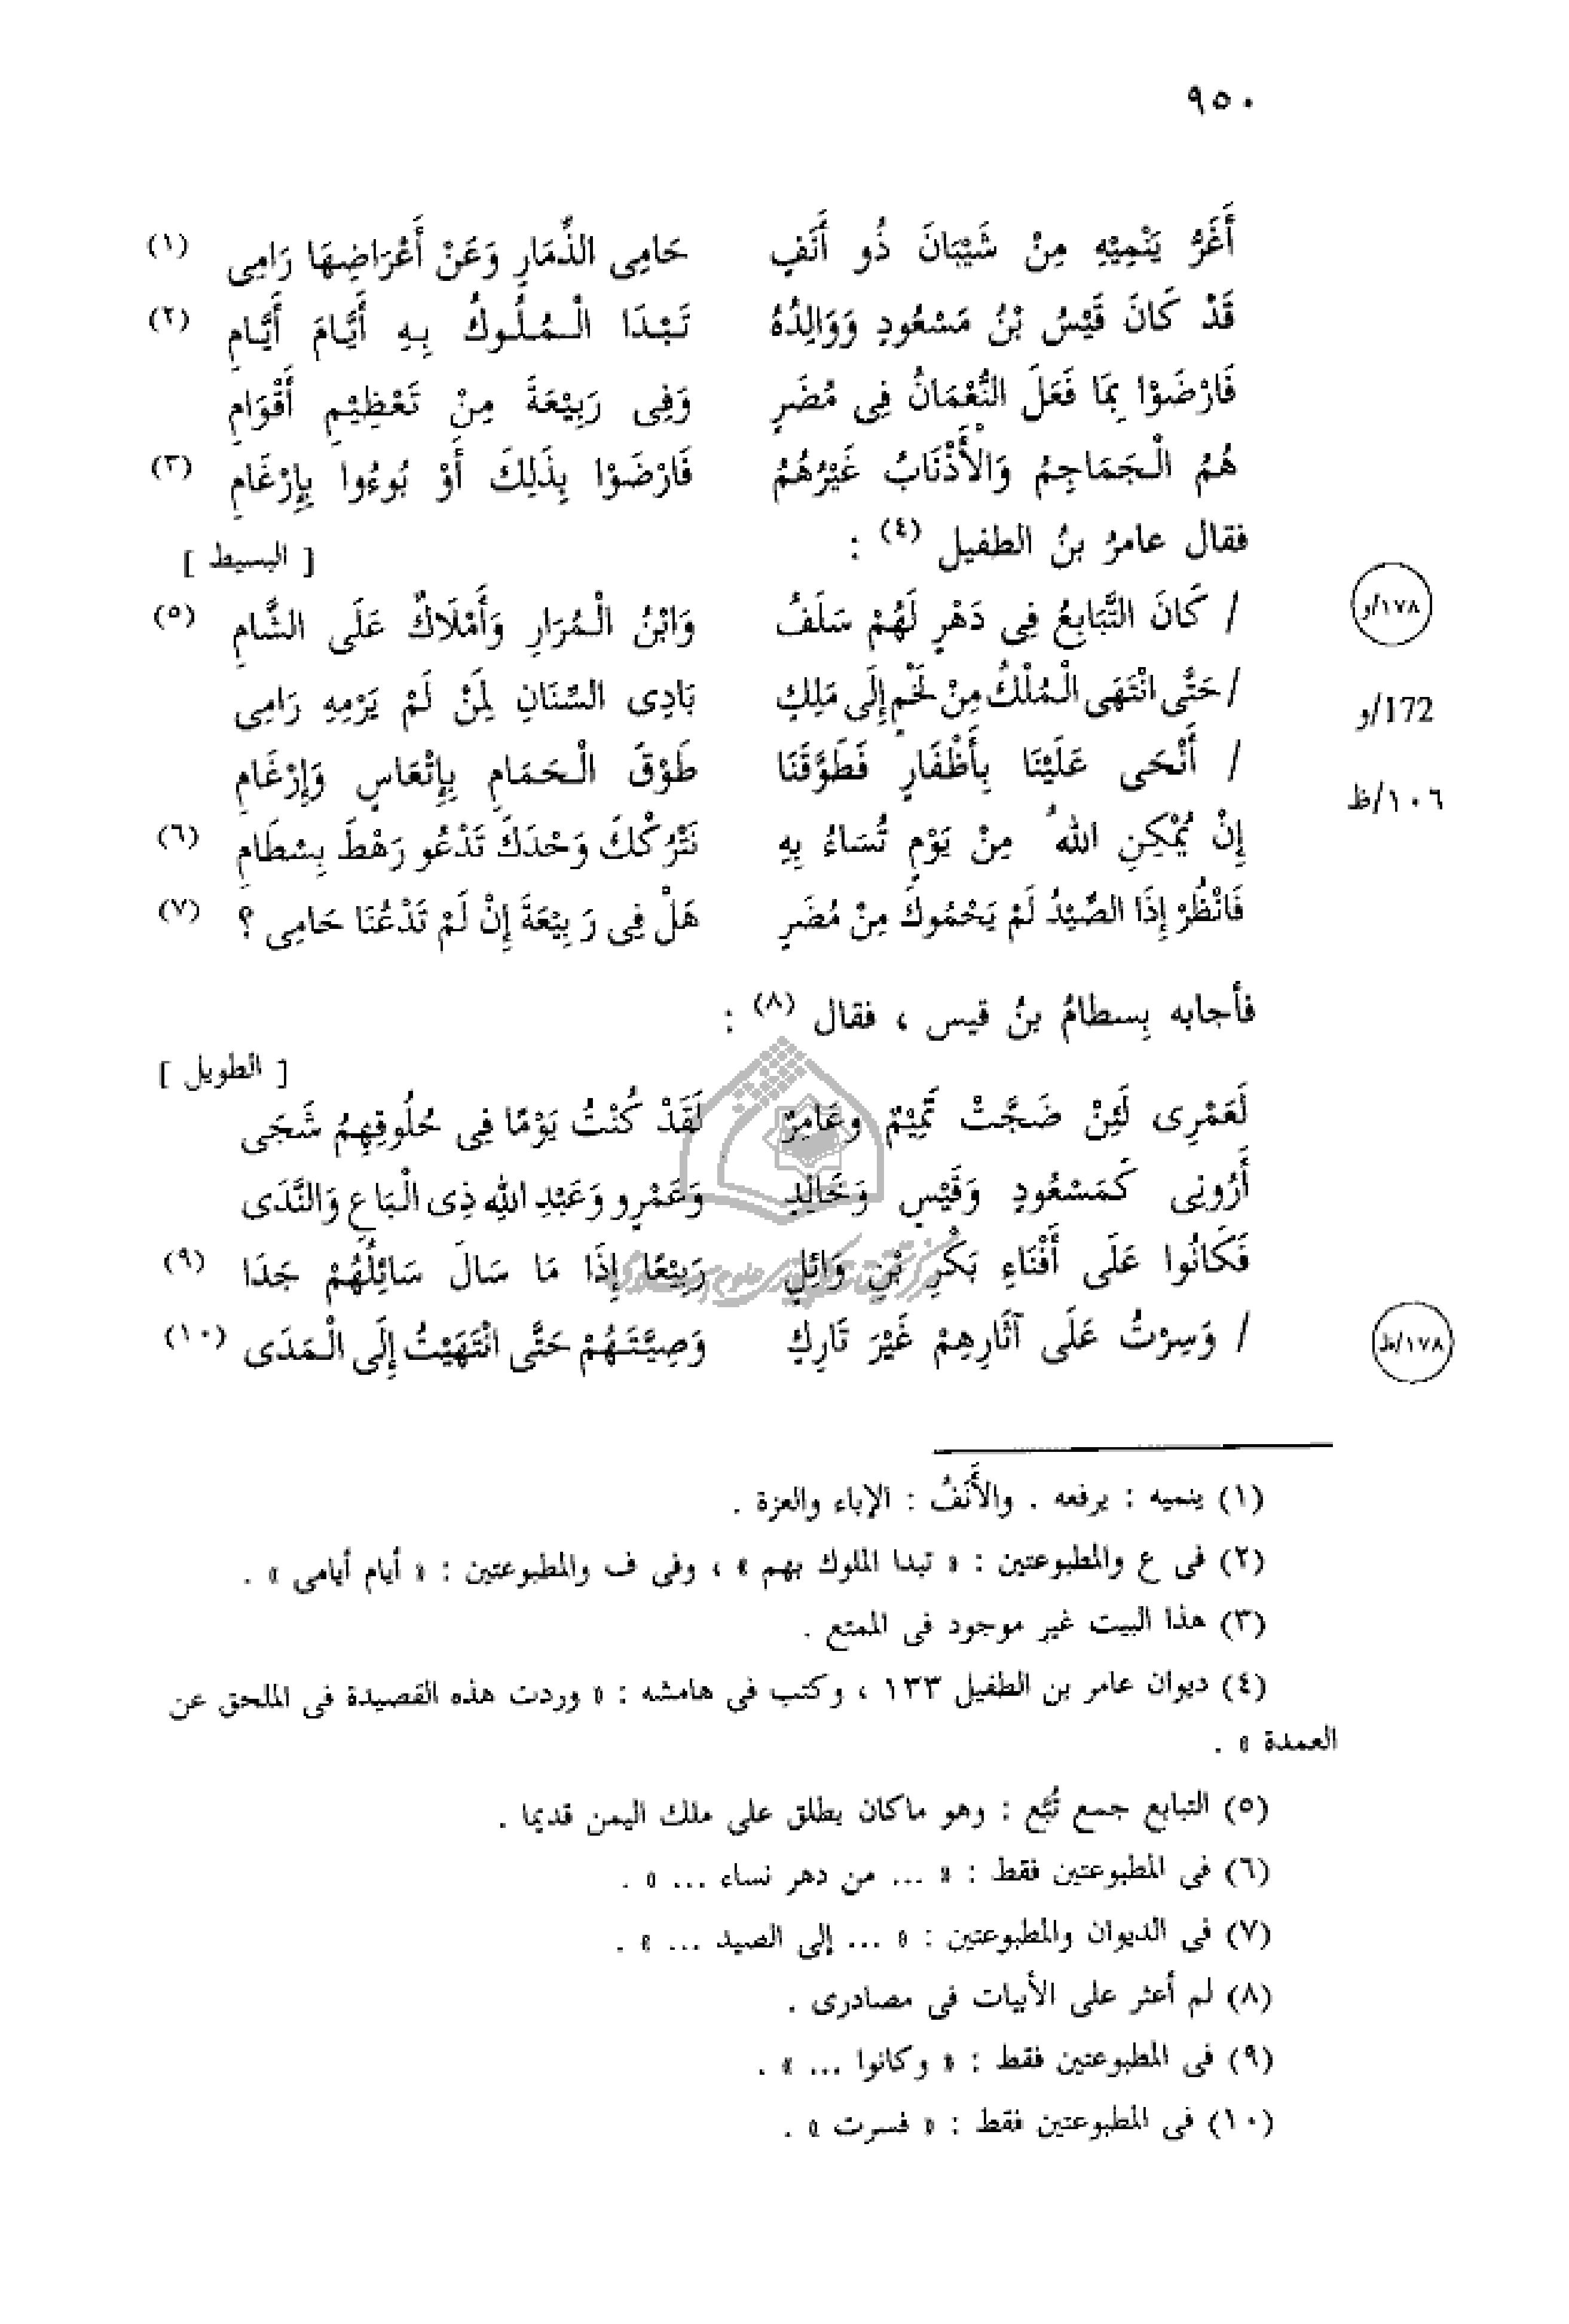 ٩٥٠
أَغَرُّ يَنْمِيْهِ مِنْ شَيْبَانَ ذُو أَنَفٍ حَامِى الذِّمَارِ وَعَنْ أَعْرَاضِهَا رَامِى (١)
قَدْ كَانَ قَيْسُ بْنُ مَسْعُودٍ وَوَالِدُهُ تَبْدَا الْمُلُوكُ بِهِ أَيَّامَ أَيَّامِ (٢)
فَارْضَوْا بِمَا فَعَلَ النُّعْمَانُ فِى مُضَرٍ وَفِى رَبِيْعَةَ مِنْ تَعْظِيْمِ أَقْوَامِ
هُمُ الْجَمَاجِمُ وَالْأَذْنَابُ غَيْرُهُمُ فَارْضَوْا بِذَلِكَ أَوْ بُوءُوا بِإِرْغَامِ (٣)
فقال عامرُ بنُ الطفيل (٤) :
[ البسيط ]
/ كَانَ التَّبَابِعُ فِى دَهْرٍ لَهُمْ سَلَفُ وَابْنُ الْمُرَارِ وَأَمْلَاكٌ عَلَى الشَّامِ (٥)
١٧٨/و
/ حَتَّى انْتَهَى الْمُلْكُ مِنْ لَخْمٍ إِلَى مَلِكٍ بَادِى السِّنَانِ لِمَنْ لَمْ يَرْمِهِ رَامِى
172/و
/ أَنْحَى عَلَيْنَا بِأَظْفَارٍ فَطَوَّقَنَا طَوْقَ الْحَمَامِ بِإِتْعَاسٍ وَإِرْغَامِ
١٠٦/ظ
إِنْ يُمْكِنِ اللهُ مِنْ يَوْمٍ تُسَاءُ بِهِ نَتْرُكْكَ وَحْدَكَ تَدْعُو رَهْطَ بِسْطَامِ (٦)
فَانْظُرْ إِذَا الصِّيْدُ لَمْ يَحْمُوكَ مِنْ مُضَرٍ هَلْ فِى رَبِيْعَةَ إِنْ لَمْ تَدْعُنَا حَامِى ؟ (٧)
فأجابه بِسطامُ بنُ قيس ، فقال (٨) :
[ الطويل ]
لَعَمْرِى لَئِنْ ضَجَّتْ تَمِيْمٌ وعَامِرٌ لَقَدْ كُنْتُ يَوْمًا فِى حُلُوقِهِمُ شَجَى
أَرُونِى كَمَسْعُودٍ وَقَيْسٍ وَخَالِدٍ وَعَمْرٍو وَعَبْدِ اللهِ ذِى الْبَاعِ وَالنَّدَى
فَكَانُوا عَلَى أَفْنَاءِ بَكْرِ بْنِ وَائِلٍ رَبِيْعًا إِذَا مَا سَالَ سَائِلُهُمْ جَدَا (٩)
/ وَسِرْتُ عَلَى آثَارِهِمْ غَيْرَ تَارِكٍ وَصِيَّتَهُمْ حَتَّى انْتَهَيْتُ إِلَى الْمَدَى (١٠)
١٧٨/ظ
(١) ينميه : يرفعه . والأَنَفُ : الإباء والعزة .
(٢) فى ع والمطبوعتين : « تبدا الملوك بهم » ، وفى ف والمطبوعتين : « أيام أيامى » .
(٣) هذا البيت غير موجود فى الممتع .
(٤) ديوان عامر بن الطفيل ١٣٣ ، وكتب فى هامشه : « وردت هذه القصيدة فى الملحق عن
العمدة » .
(٥) التبابع جمع تُبَّع : وهو ماكان يطلق على ملك اليمن قديما .
(٦) فى المطبوعتين فقط : « ... من دهر نساء ... » .
(٧) فى الديوان والمطبوعتين : « ... إلى الصيد ... » .
(٨) لم أعثر على الأبيات فى مصادرى .
(٩) فى المطبوعتين فقط : « وكانوا ... » .
(١٠) فى المطبوعتين فقط : « فسرت » .